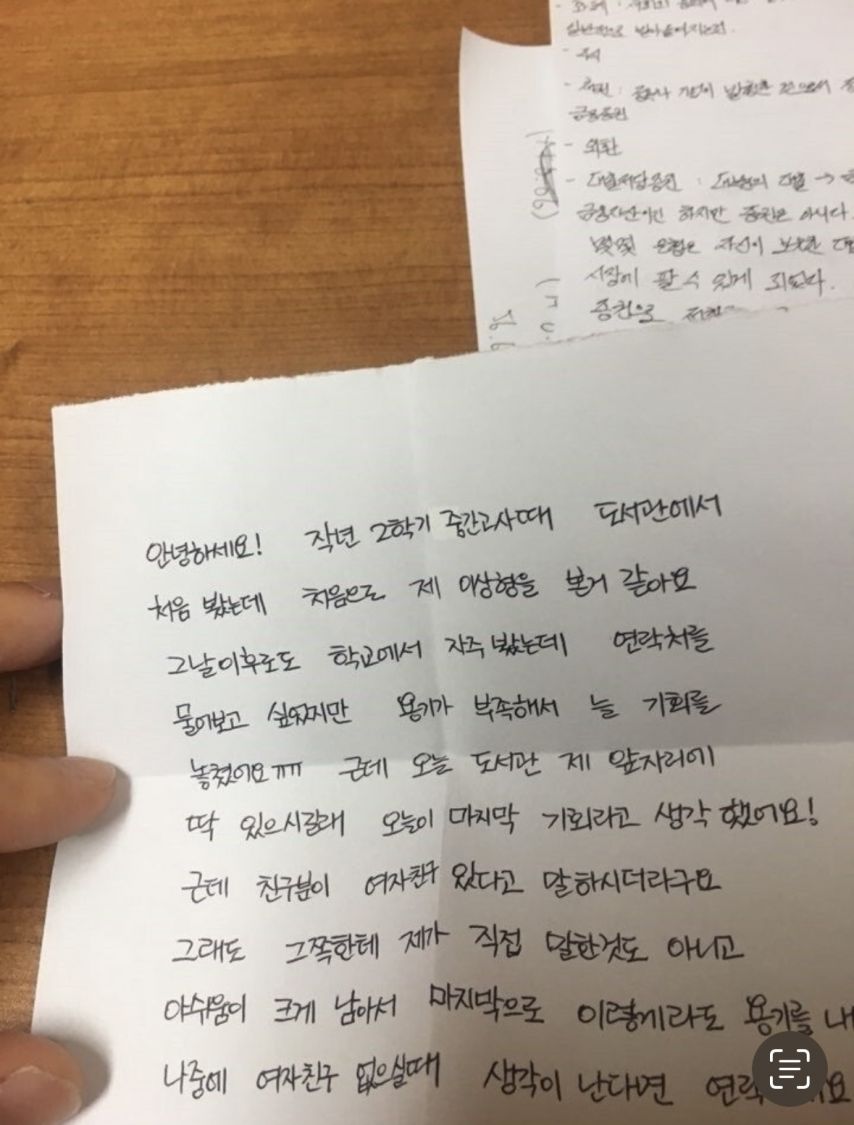 일반적으로 받아들여지는것.
- 주식
금융증권
- 외환
금융자산이긴 하지만 증권은 아니다.
몇몇 은행은 자신이 보유한
시장에 팔 수 있게 되었다.
증권으로
안녕하세요! 작년 2학기 중간고사때 도서관에서
처음 봤는데 처음으로 제 이상형을 본거 같아요
그날이후로도 학교에서 자주 봤는데 연락처를
물어보고 싶었지만 용기가 부족해서 늘 기회를
놓쳤어요ㅠㅠ 근데 오늘 도서관 제 앞자리에
딱 있으시길래 오늘이 마지막 기회라고 생각 했어요!
근데 친구분이 여자친구 있다고 말하시더라구요
그래도 그쪽한테 제가 직접 말한것도 아니고
아쉬움이 크게 남아서 마지막으로 이렇게라도 용기를 내
나중에 여자친구 없으실때 생각이 난다면 연락